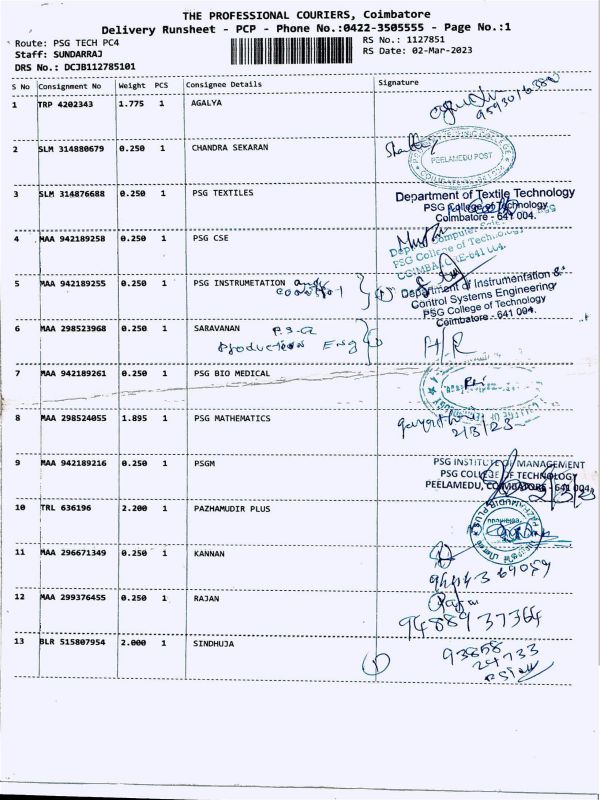 THE PROFESSIONAL COURIERS, Coimbatore
Delivery Runsheet - PCP - Phone No.:0422-3505555 - Page No.:1
Route: PSG TECH PC4
RS No.: 1127851
Staff: SUNDARRAJ
RS Date: 02-Mar-2023
DRS No.: DCJB112785101
S No Consignment No Weight PCS Consignee Details Signature
1 TRP 4202343 1.775 1 AGALYA
2 SLM 314880679 0.250 1 CHANDRA SEKARAN
PEELAMEDU POST
3 SLM 314876688 0.250 1 PSG TEXTILES
Department of Textile Technology
PSG College of Technology
Coimbatore - 641 004.
4 MAA 942189258 0.250 1 PSG CSE
PSG College of Technology
COIMBATORE-641 004.
5 MAA 942189255 0.250 1 PSG INSTRUMETATION and
control
Department of Instrumentation &
Control Systems Engineering
PSG College of Technology
Coimbatore - 641 004.
6 MAA 298523968 0.250 1 SARAVANAN P.S.G
Production Eng
7 MAA 942189261 0.250 1 PSG BIO MEDICAL
8 MAA 298524055 1.895 1 PSG MATHEMATICS
2/3/23
9 MAA 942189216 0.250 1 PSGM
PSG INSTITUTE OF MANAGEMENT
PSG COLLEGE OF TECHNOLOGY
PEELAMEDU, COIMBATORE - 641 004
10 TRL 636196 2.200 1 PAZHAMUDIR PLUS
11 MAA 296671349 0.250 1 KANNAN
12 MAA 299376455 0.250 1 RAJAN
Rajan
9488937364
13 BLR 515807954 2.000 1 SINDHUJA
93858
24733